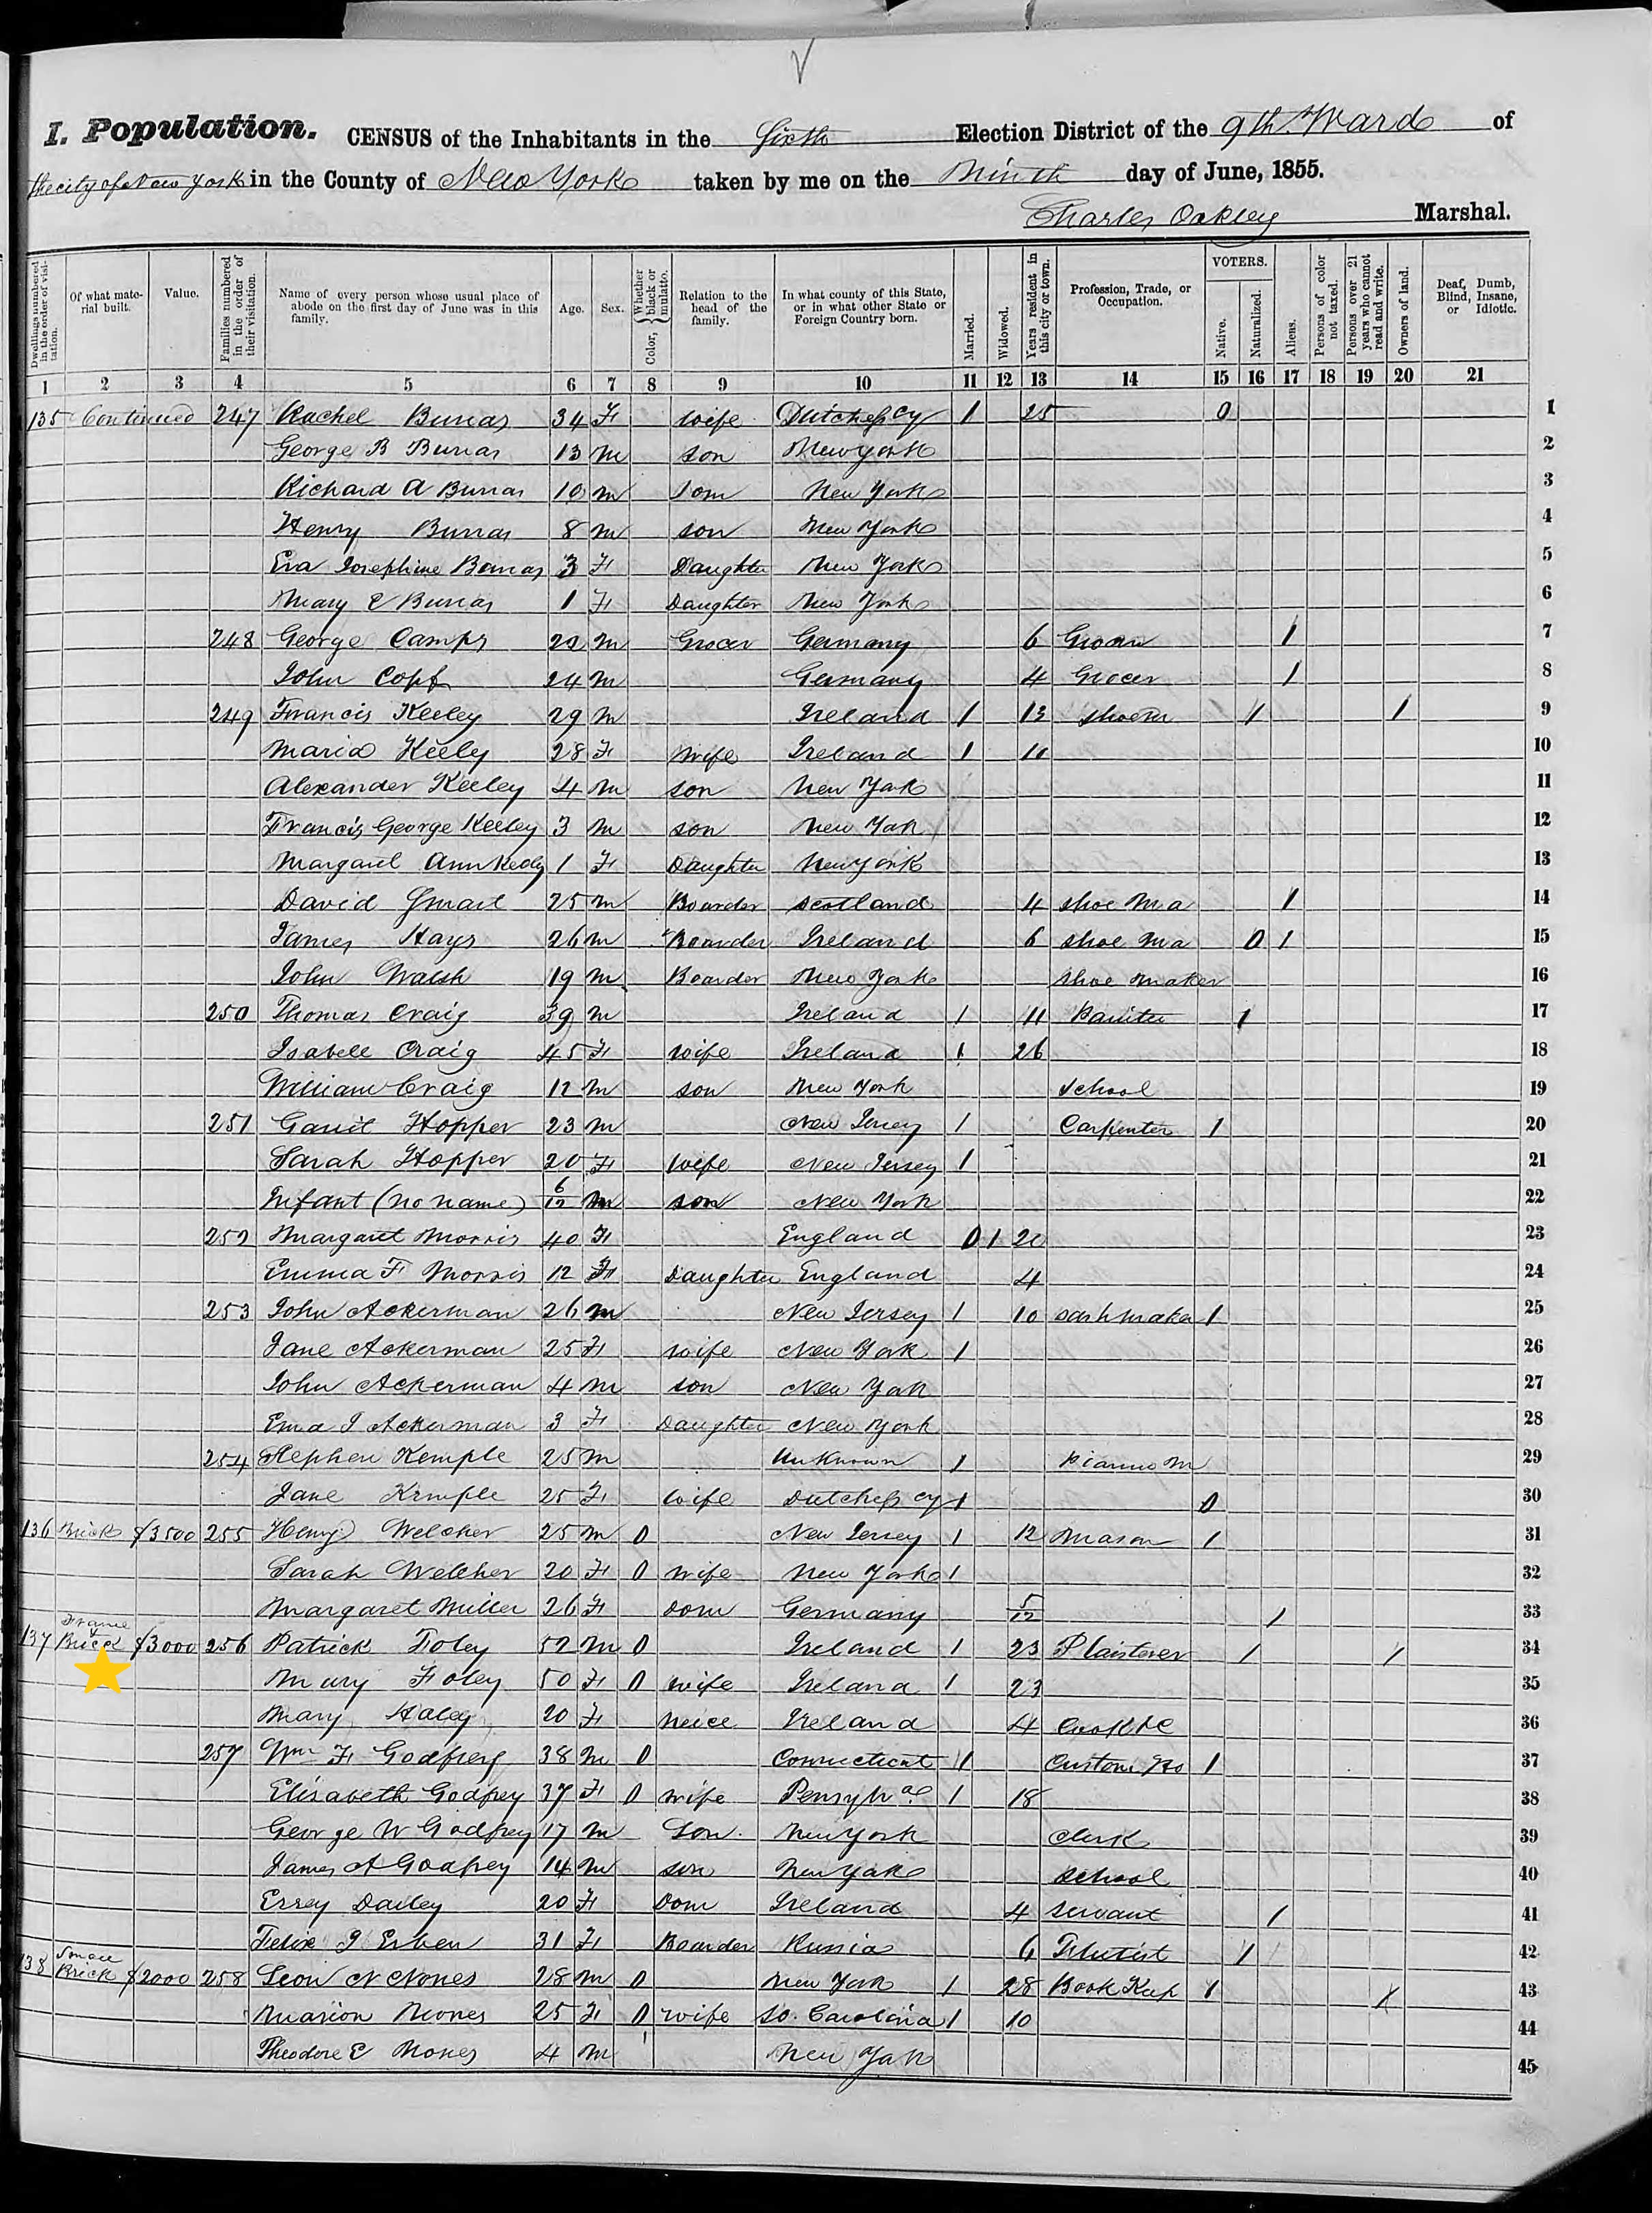 I. Population. CENSUS of the Inhabitants in the Sixth Election District of the 9th Ward of
the city of New York in the County of New York taken by me on the Ninth day of June, 1855.
Charles Oakley Marshal.
Dwellings numbered in the order of visitation. Of what material built. Value. Families numbered in the order of their visitation. Name of every person whose usual place of abode on the first day of June was in this family. Age. Sex. Color, Whether black or mulatto. Relation to the head of the family. In what county of this State, or in what other State or Foreign Country born. Married. Widowed. Years resident in this city or town. Profession, Trade, or Occupation. VOTERS. Native. Naturalized. Aliens. Persons of color not taxed. Persons over 21 years who cannot read and write. Owners of land. Deaf, Dumb, Blind, Insane, or Idiotic.
1 2 3 4 5 6 7 8 9 10 11 12 13 14 15 16 17 18 19 20 21
135 Continued 247 Rachel 34 F wife Dutchess cy 1 25 0 1
George B 13 m son New York 2
Richard A 10 m son New York 3
Henry 8 m son New York 4
Eva Josephine 3 F Daughter New York 5
Mary E 1 F Daughter New York 6
248 George Camps m Grocer Germany 6 1 7
John Copf 24 m Germany 4 Grocer 1 8
249 Francis Keeley 29 m Ireland 1 13 1 1 9
Maria Keely 28 F wife Ireland 1 11 10
Alexander Keeley 4 m son New York 11
Francis George Keeley 3 m son New York 12
Margaret Ann Keely 1 F Daughter New York 13
David 25 m Boarder Scotland 4 shoe Ma 1 14
James Hays 26 m Boarder Ireland 6 shoe Ma 0 1 15
John Walsh 19 m Boarder New York shoe maker 16
250 Thomas Craig 39 m Ireland 1 11 1 17
Isabell Craig 45 F wife Ireland 1 26 18
William Craig 12 m son New York school 19
251 Garrit Hopper 23 m New Jersey 1 Carpenter 1 20
Sarah Hopper 20 F wife New Jersey 1 21
Infant (no name) 6/12 m son New York 22
252 Margaret Morris 40 F England 0 1 23
Emma F Morris 12 F Daughter England 4 24
253 John Ackerman 26 m New Jersey 1 10 sash maker 1 25
Jane Ackerman 25 F wife New York 1 26
John Ackerman 4 m son New York 27
Ema J Ackerman 3 F Daughter New York 28
254 Stephen Kemple 25 m Unknown 1 pianno M 29
Jane Kemple 25 F wife Dutchess cy 1 0 30
136 Brick $3500 255 Henry Welcher 25 m 0 New Jersey 1 12 Mason 1 31
Sarah Welcher 20 F 0 wife New York 1 32
Margaret Miller 26 F Dom Germany 5/12 1 33
137 Frame Brick $3000 256 Patrick Foley 52 m 0 Ireland 1 23 Plaisterer 1 1 34
Mary Foley 50 F 0 wife Ireland 1 23 35
Mary Haley 20 F neice Ireland 4 36
257 Wm F Godfrey 38 m 0 Connecticut 1 Custom Ho 1 37
Elisabeth Godfrey 37 F 0 wife 1 18 38
George W Godfrey 17 m Son New York clerk 39
James A Godfrey 14 m son New York school 40
Dailey 20 F Dom Ireland 4 servant 1 41
Felix J 31 F Boarder Russia 6 1 42
138 Brick $2000 258 Leon N Nones 28 m 0 New York 1 28 Book Keep 1 43
Marion Nones 25 F 0 wife So. Carolina 1 10 44
Theodore E Nones 4 m New York 45